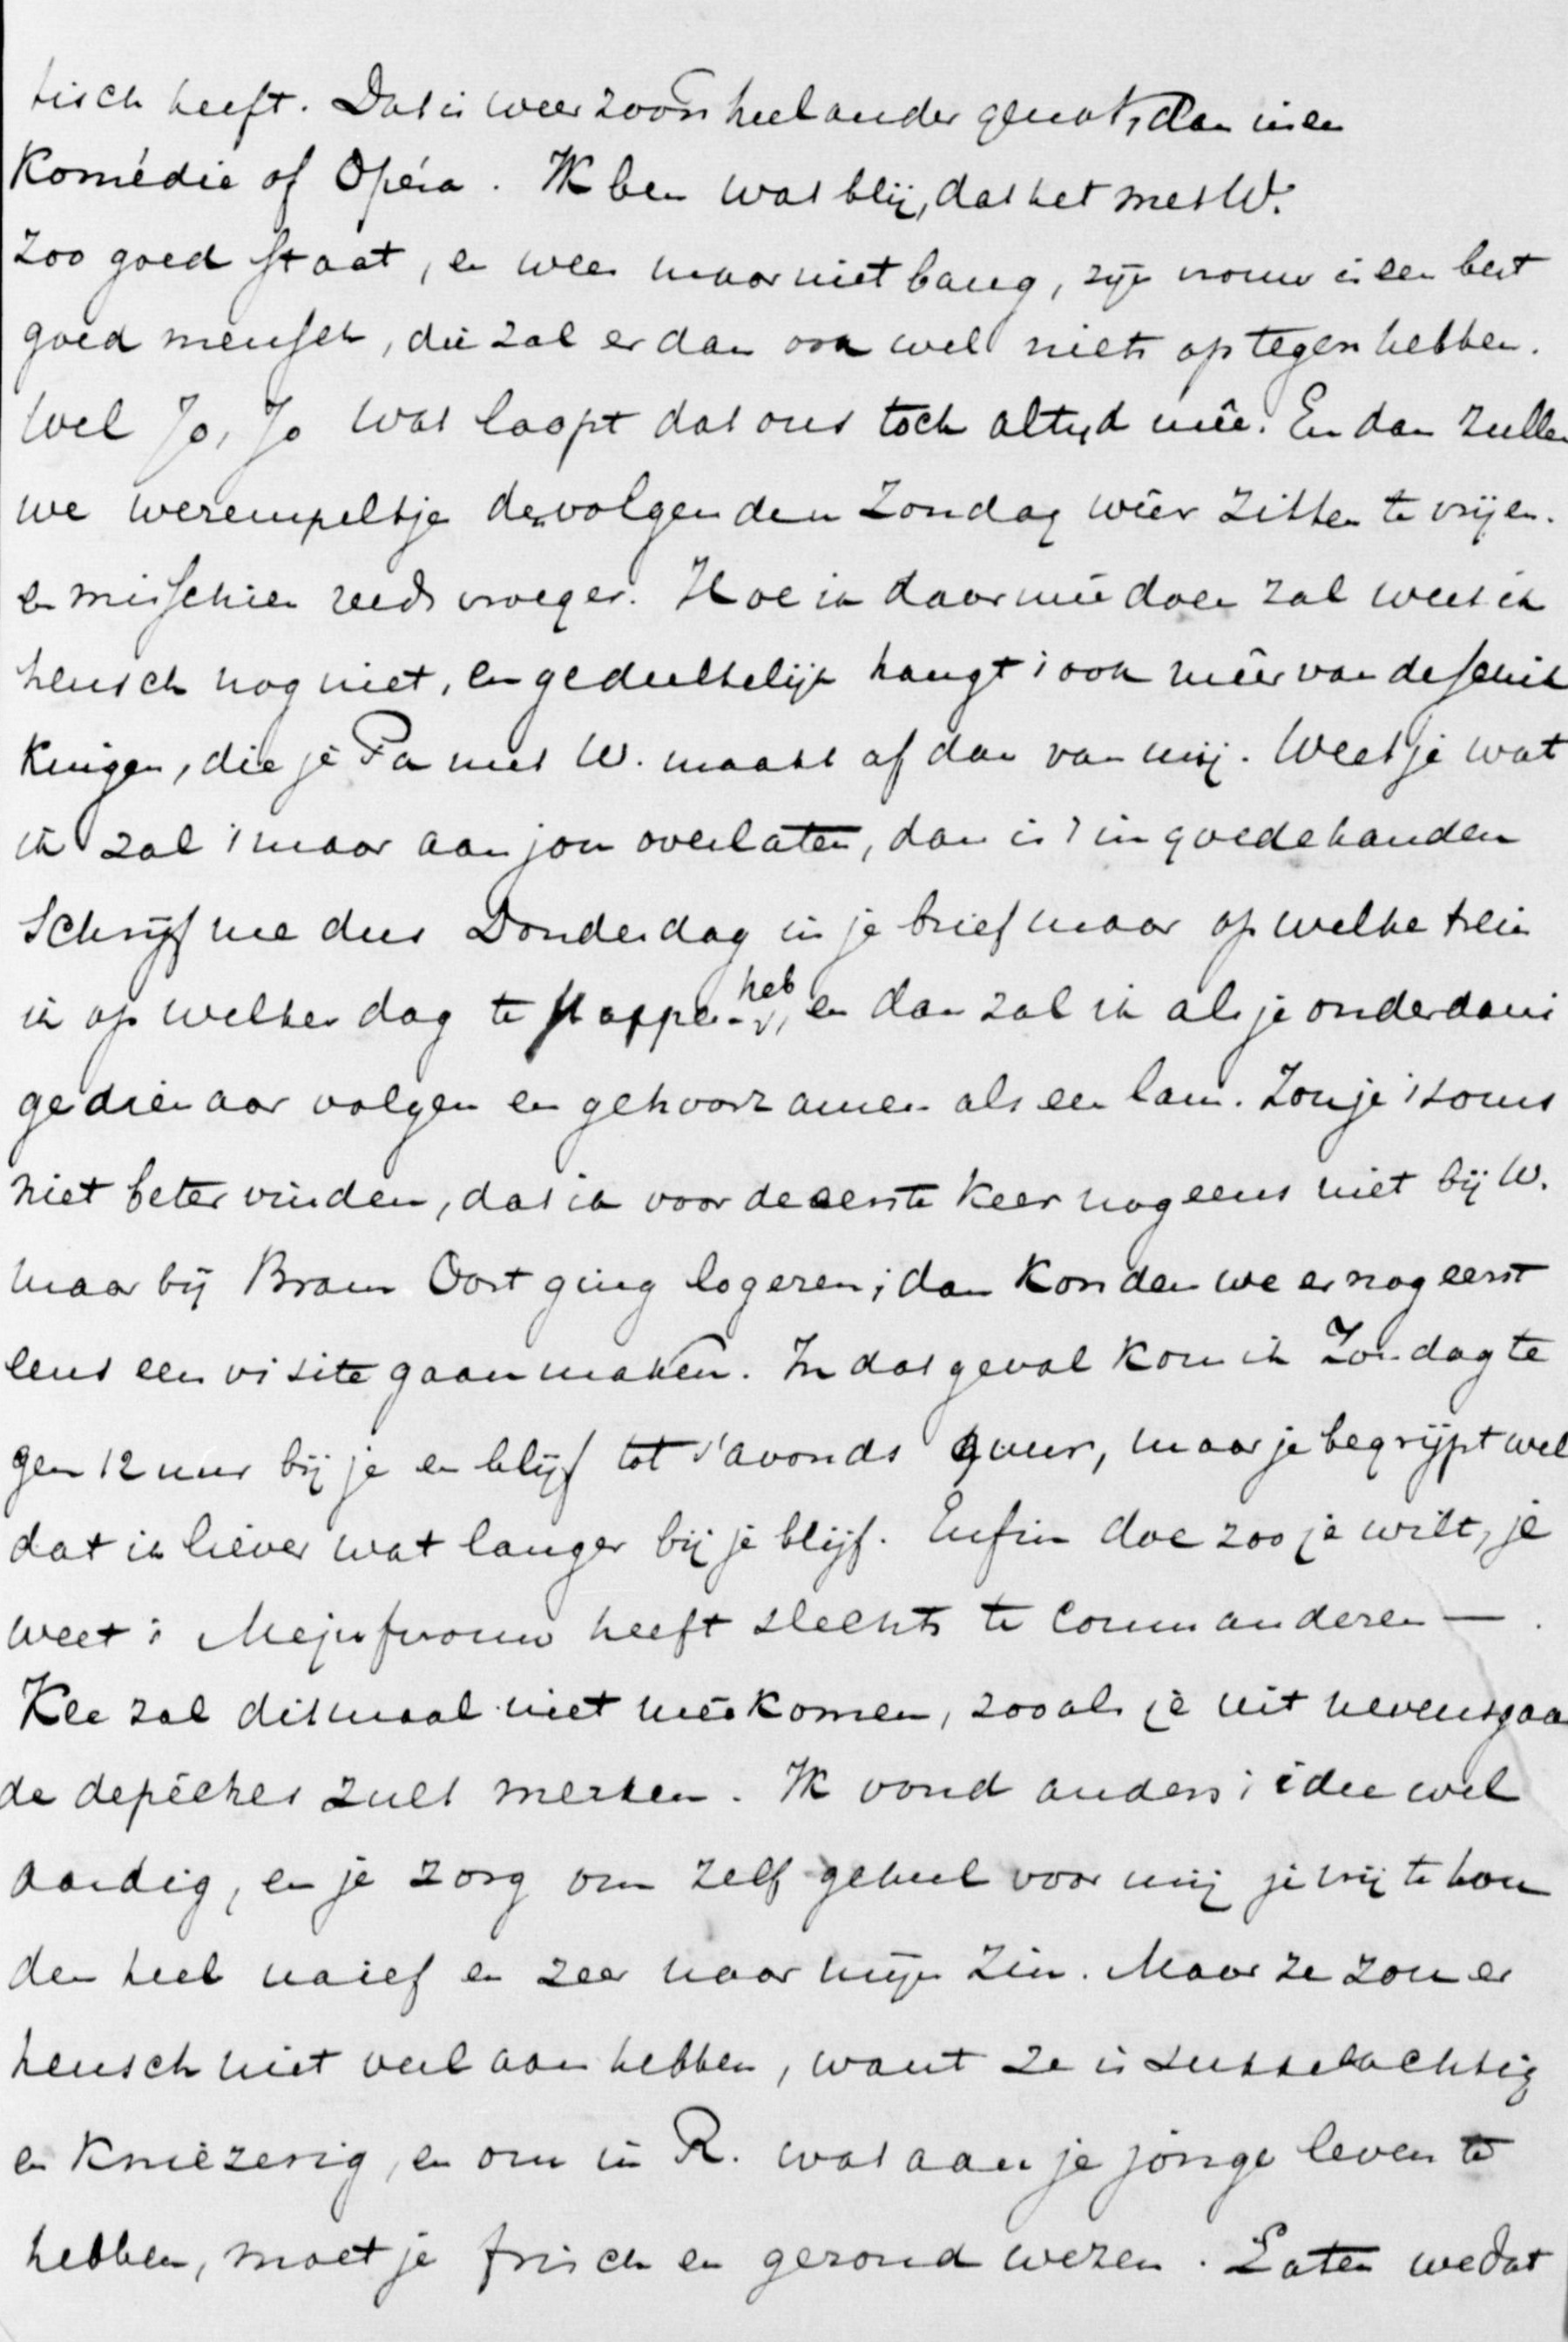 tisch heeft. Dat is weer zoo'n heel ander genot, dan in een
Komédie of Opéra. Ik ben wat blij, dat het met W.
zoo goed staat, en wees maar niet bang, zijn vrouw is een best
goed mensch, die zal er dan ook wel niets op tegen hebben.
Wel Jo, Jo wat loopt dat ons toch altijd meê. En dan zullen
we werempeltje den volgenden Zondag wêer zitten te vrijen.
en misschien reeds vroeger. Hoe ik daar meê doen zal weet ik
heusch nog niet, en gedeeltelijk hangt 't ook mêer van de schik
kingen, die je Pa met W. maakt af dan van mij. Weet je wat
ik zal 't maar aan jou overlaten, dan is 't in goede handen
Schrijf me dus Donderdag in je brief maar op welke trein
ik op welken dag te stappen heb, en dan zal ik als je onderdani
ge dienaar volgen en gehoorzamen als een lam. Zou je 't soms
niet beter vinden, dat ik voor de eerste keer nog eens niet bij W.
maar bij Bram Oort ging logeren; dan konden we er nog eerst
eens een visite gaan maken. In dat geval kom ik Zondag te
gen 12 uur bij je en blijf tot 's avonds 9 uur, maar je begrijpt wel
dat ik liever wat langer bij je blijf. Enfin doe zoo je wilt, je
weet: Mejufvrouw heeft slechts te Commanderen —.
Kee zal ditmaal niet meêkomen, zooals je uit nevensgaan
de depêches zult merken. Ik vond anders 't idee wel
aardig, en je zorg om zelf geheel voor mij je vrij te hou
den heel naief en zeer naar mijn zin. Maar ze zou er
heusch niet veel aan hebben, want ze is sukkelachtig
en kniezerig, en om in R. wat aan je jonge leven te
hebben, moet je frisch en gezond wezen. Laten we dat